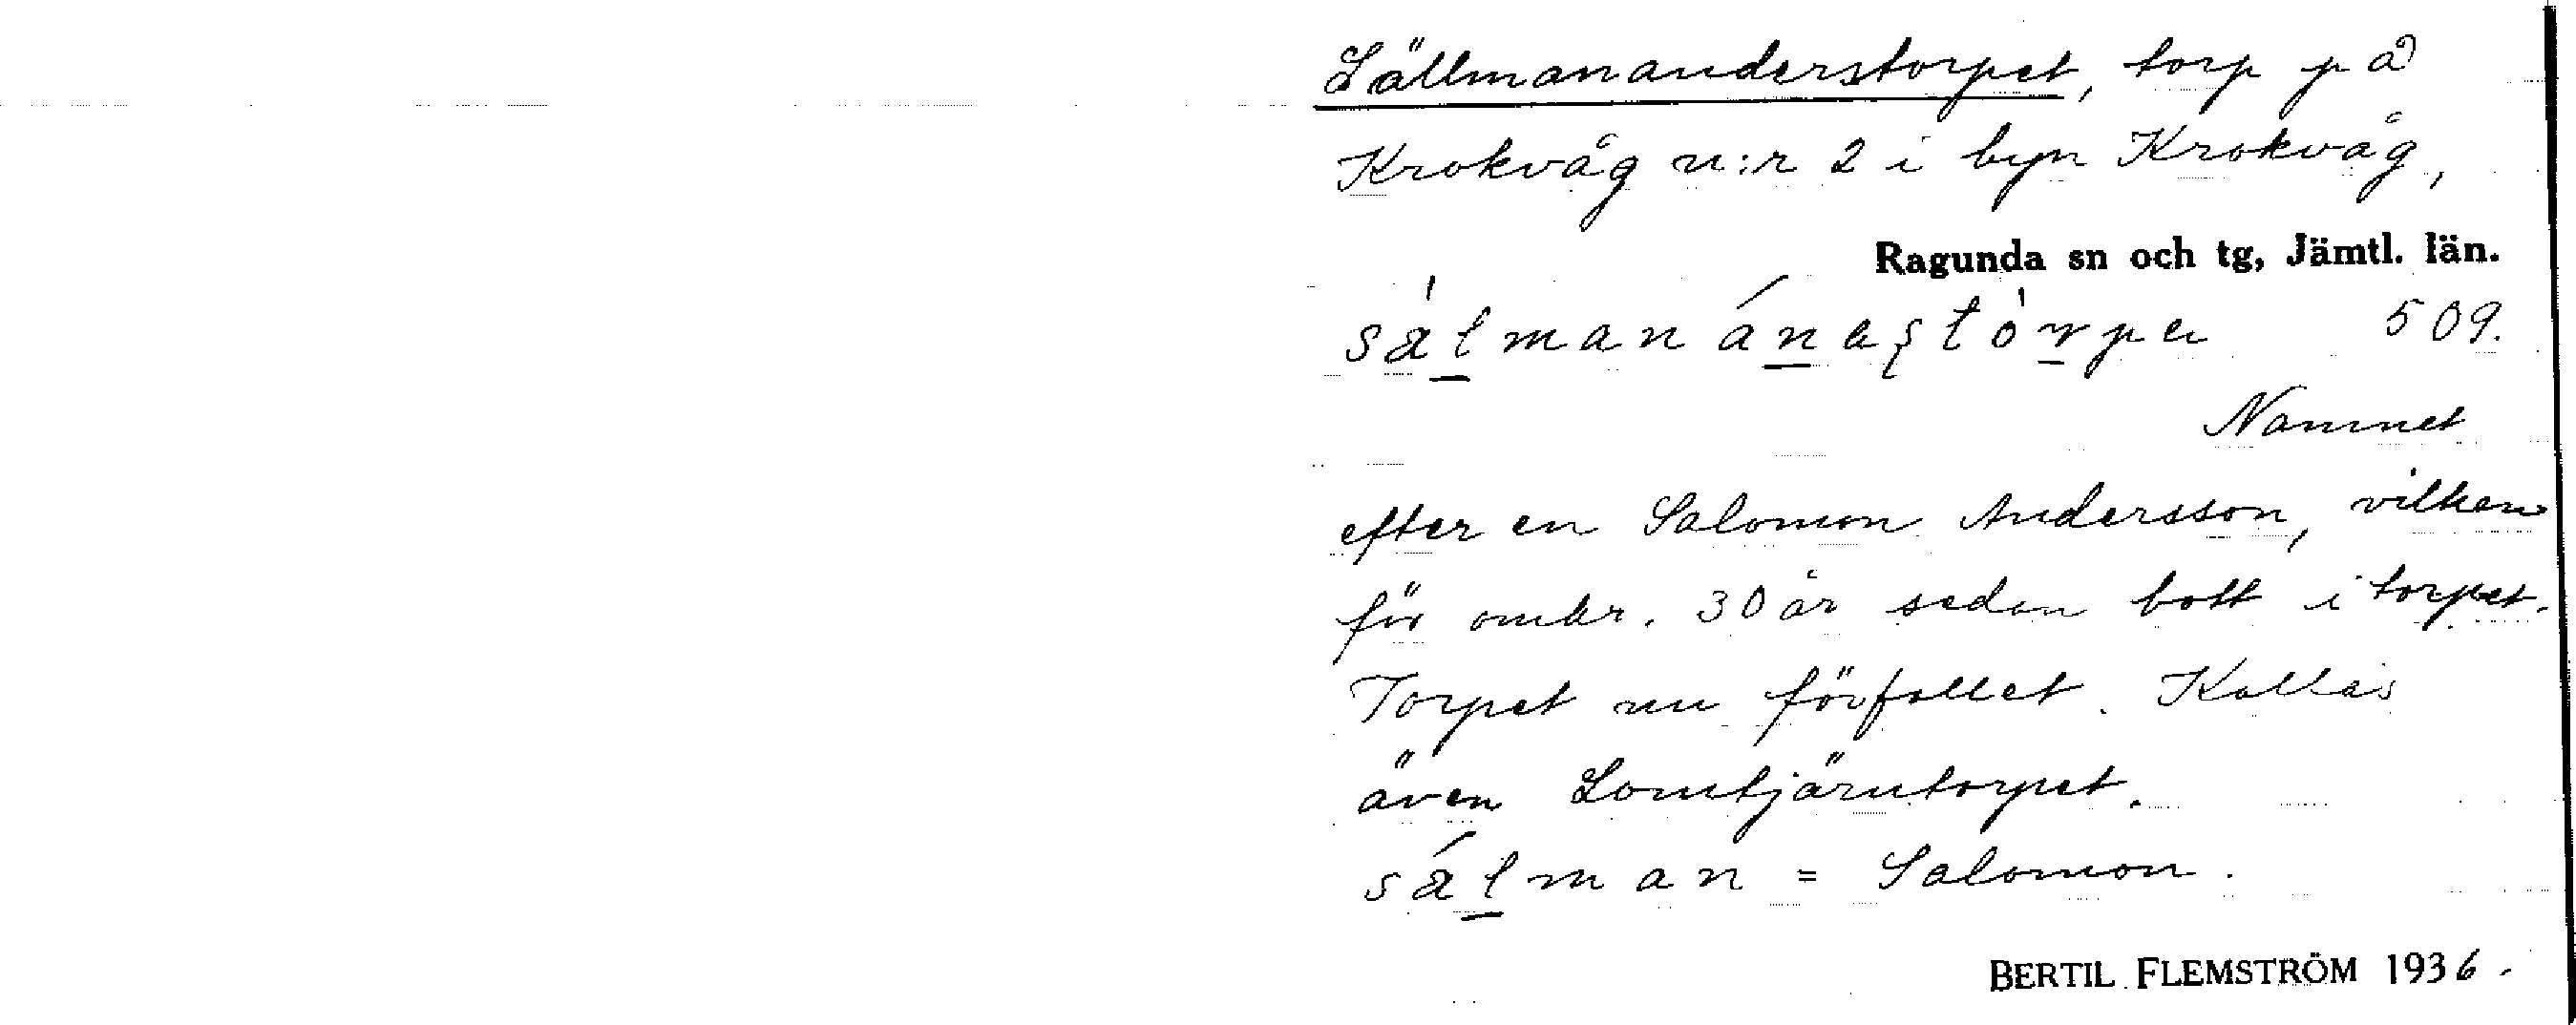 Sällmananderstorpet, torp på
Krokvåg n:r 2 i byn Krokvåg,
Ragunda sn och tg, Jämtl. län.
509.
Namnet
efter en Salomon Andersson, vilken
för omkr. 30 år sedan bott i torpet.
Torpet nu förfallet. Kallas
även Lomtjärntorpet.
sálman = Salomon.
BERTIL FLEMSTRÖM 1936.